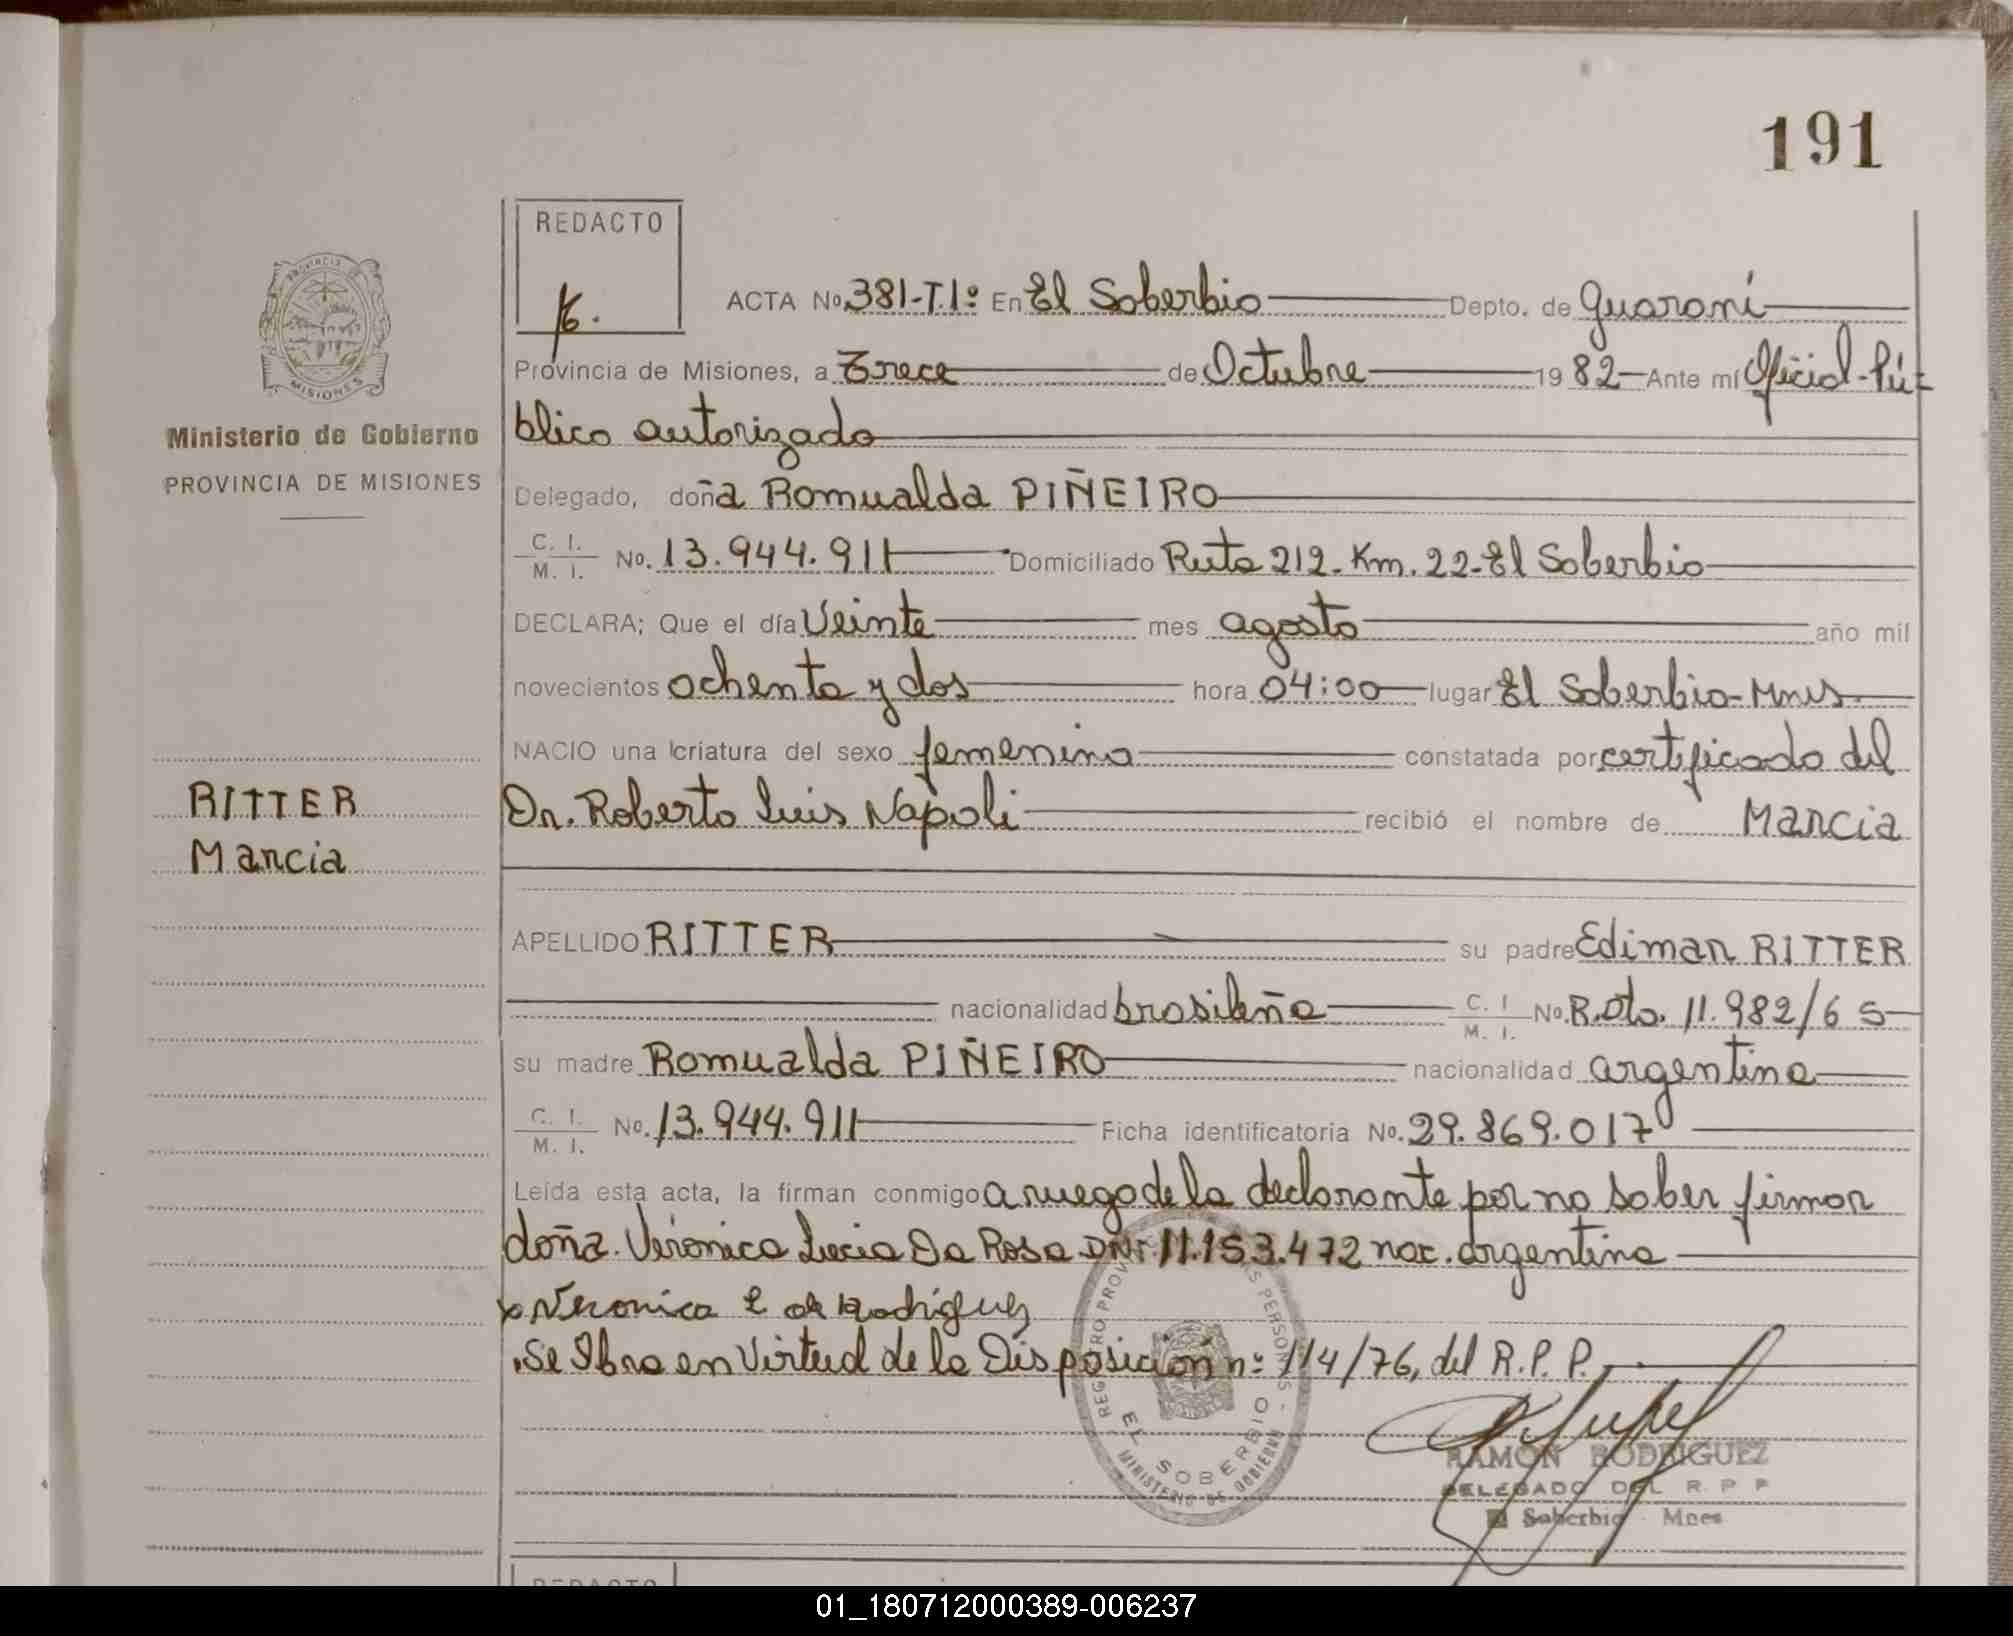 191
REDACTO
PROVINCIA DE
MISIONES
ACTA No. 381-T.1º En El Soberbio Depto. de Guaraní
Provincia de Misiones, a Trece de Octubre 1982 Ante mí Oficial-Pú-
blico autorizado
Ministerio de Gobierno
PROVINCIA DE MISIONES
Delegado, doña Romualda PIÑEIRO
C. I. M. I. No. 13.944.911 Domiciliado Ruta 212. Km. 22-El Soberbio
DECLARA; Que el día Veinte mes agosto año mil
novecientos ochenta y dos hora 04:00 lugar El Soberbio-Mnes.
NACIO una criatura del sexo femenino constatada por certificado del
Dr. Roberto Luis Napoli recibió el nombre de Marcia
RITTER
Marcia
APELLIDO RITTER su padre Ediman RITTER
nacionalidad brasileña C. I. M. I. No. R.Dto. 11.982/65
su madre Romualda PIÑEIRO nacionalidad argentina
C. I. M. I. No. 13.944.911 Ficha identificatoria No. 29.869.017
Leída esta acta, la firman conmigo a ruego de la declarante por no saber firmar
doña. Verónica Lucia Da Rosa DNI. 11.153.472 nac. argentina
x Veronica L de Rodriguez
Se Obra en Virtud de la Disposición nº 114/76, del R.P.P.
EL SOBERBIO
MINISTERIO DE GOBIERNO
RAMON RODRIGUEZ
DELEGADO DEL R. P. P
El Soberbio - Mnes
REDACTO
01_180712000389-006237